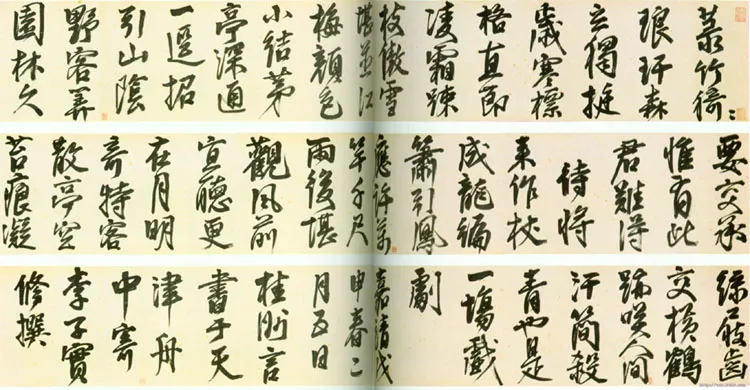 菉竹猗〻
琅玕森
立獨挺
歲寒標
格直節
凌霜踈
枝傲雪
堪並江
梅顏色
小結茅
亭深通
一逕招
引山陰
野客算
園林久
要交承
惟有此
君難得
待將
来作杖
成龍編
簫引鳳
應許萬
竿千尺
雨後堪
觀風前
宜聽更
在月明
奇特客
散亭空
苔痕凝
綠屐齒
交橫鶴
跡咲人間
汗簡殺
青也是
一場戲
劇
嘉靖戊
申春二
月五日
桂洲言
書于天
津舟
中寄
李子實
修撰